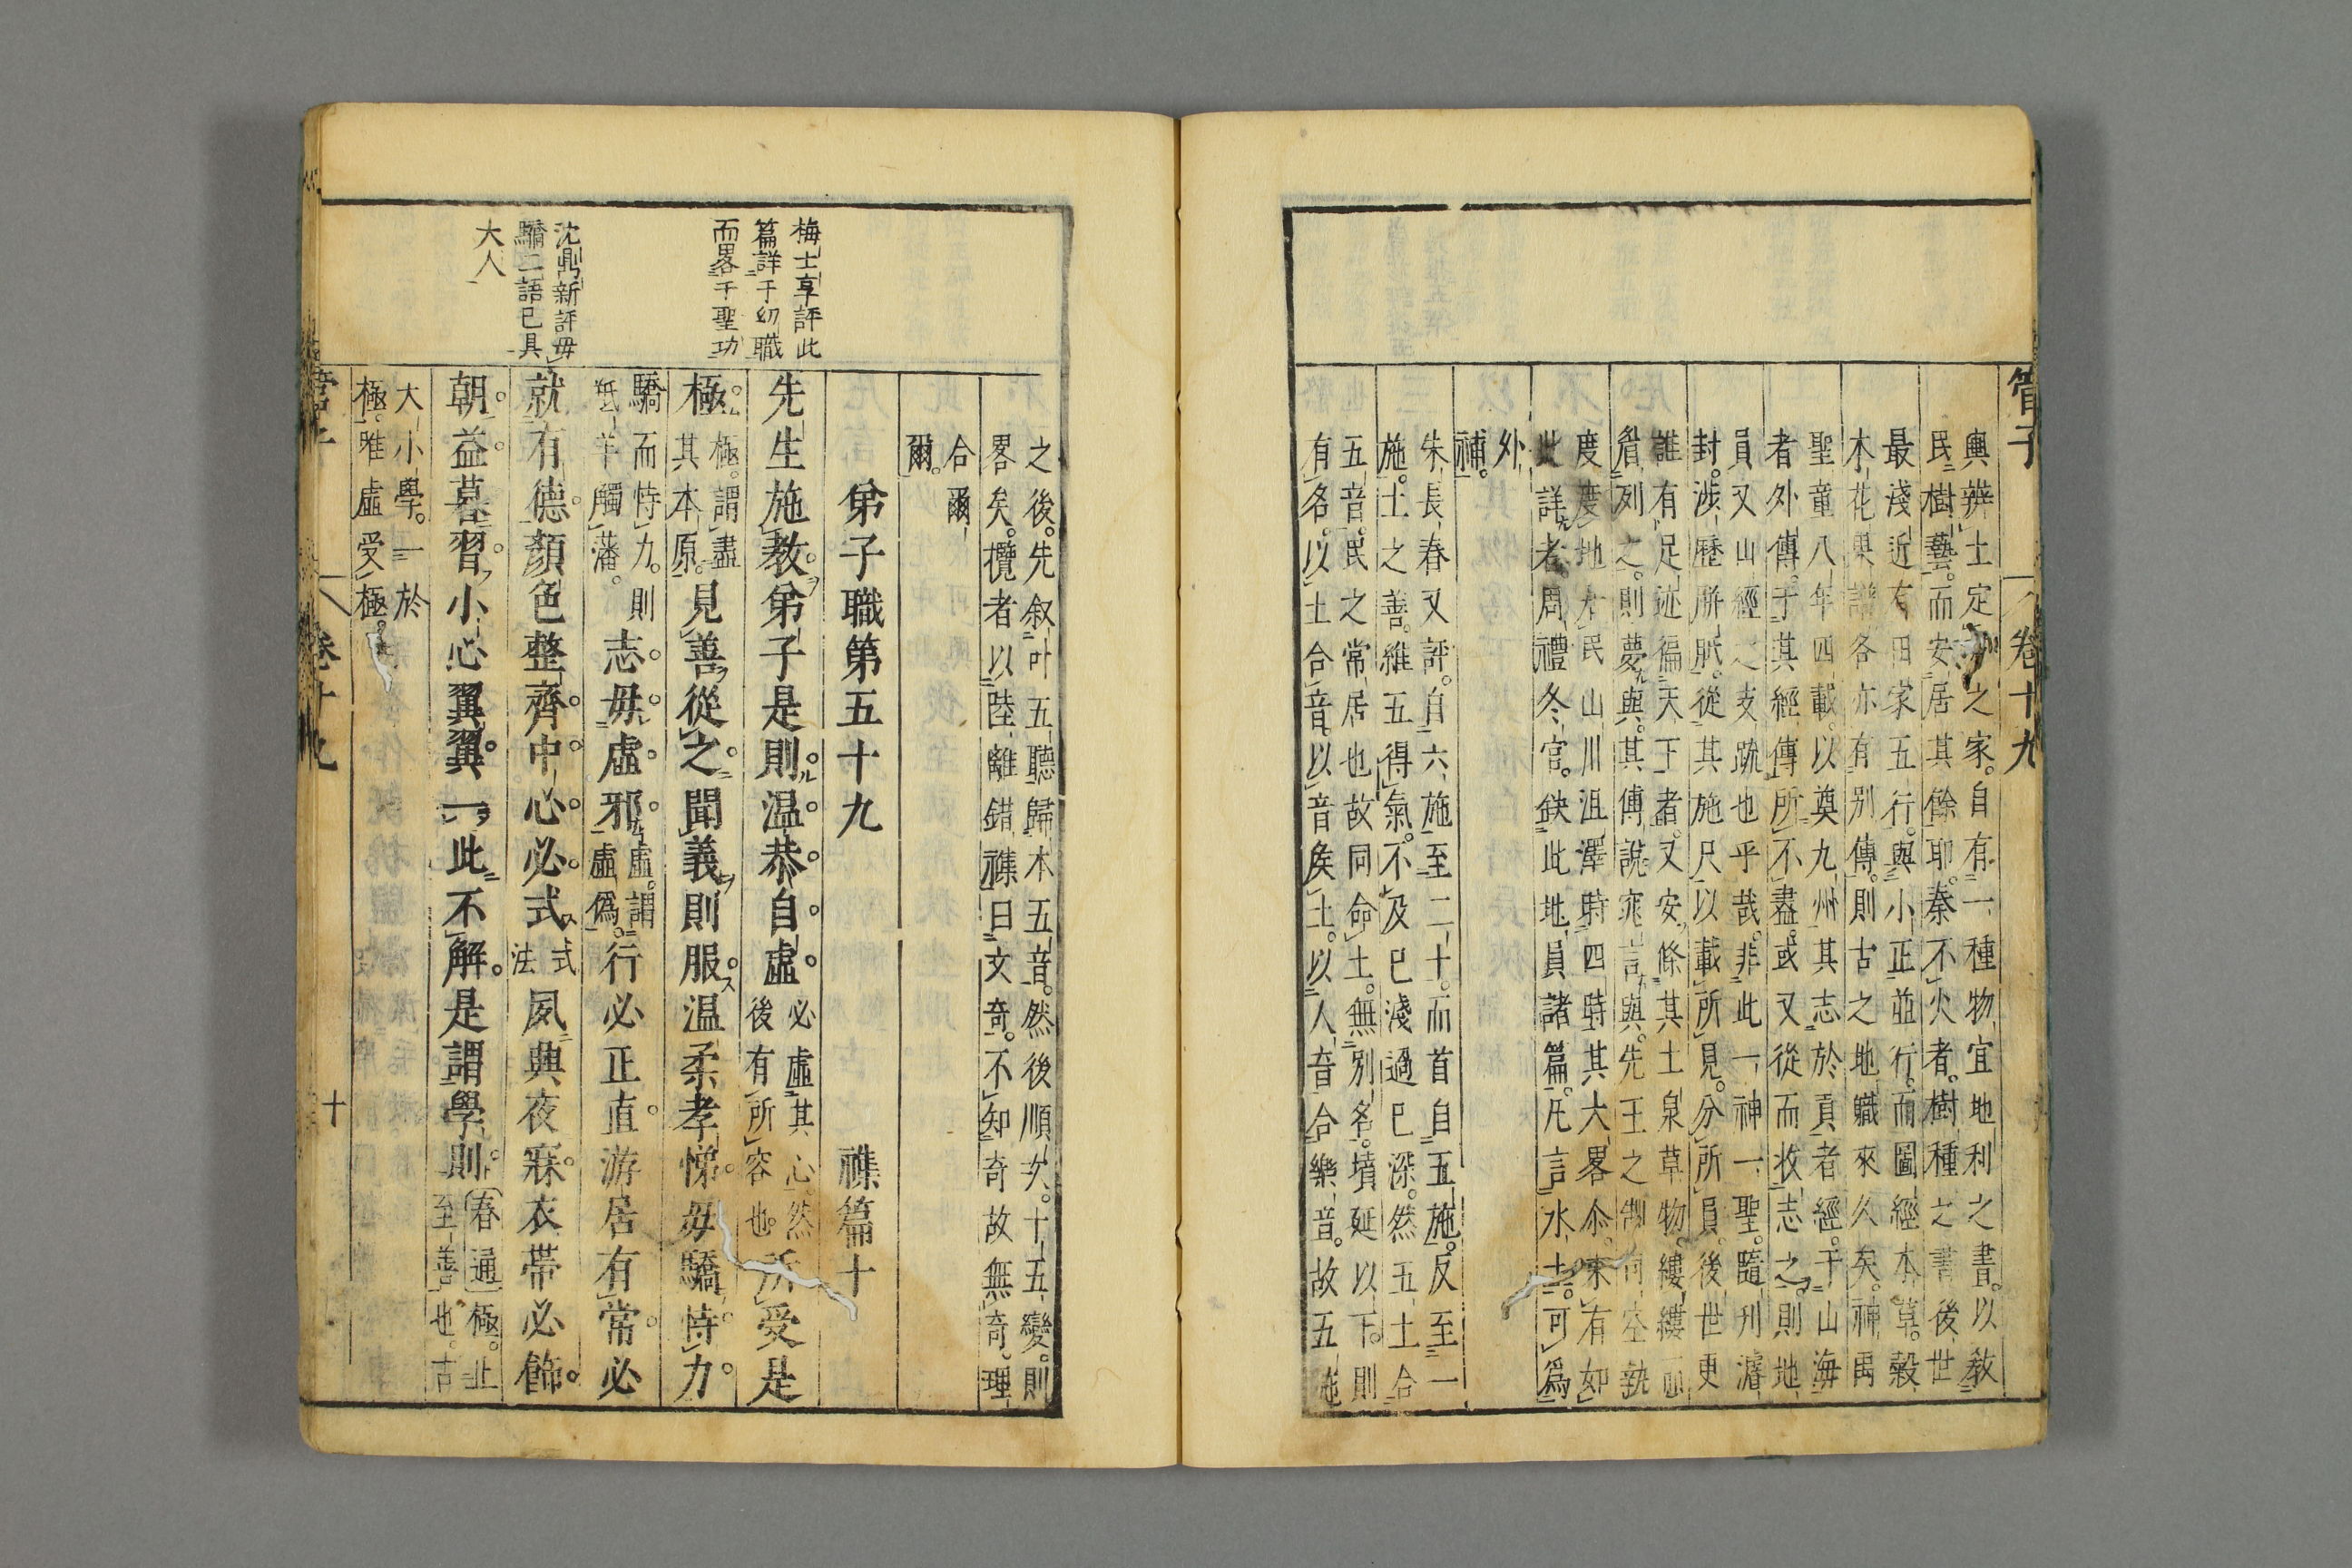 管子 卷十九
輿辨土定之家。自有一種物宜地利之書。以教
民樹藝。而安居其餘耶。秦不火者。樹種之書後世
最淺近有田家五行。與小正並行。而圖經本草。穀
木花果譜各亦有別傳。則古之地職來久矣。神禹
聖童八年四載。以奠九州其志於貢者經。于山海
者外傳。于其經傳所不盡。或又從而收志之。則地
員又山經之支疏也乎哉。非此一神一聖。隨刋濬
封。涉歷胼胝。從其施尺以載所見。分所員。後世更
誰有足迹徧天下者。又安條其土泉草物。縷縷而
眉列之。則夢與。其傅說寐言與。先王之制司空執
度度地居民山川沮澤時四時其大畧尒。未有如
此詳者。周禮冬官。缺此地員諸篇。凡言水土。可爲
外
補。
朱長春又評。自六施至二十。而首自五施。反至一
施。土之善。維五得氣。不及巳淺過巳深。然五土合
五音。民之常居也故同命土。無別名。墳延以下。則
有各。以土合音。以音矣土。以人音合樂音。故五施
之後。先叙叶五聽歸本五音。然後順次。十五變。則
畧矣。攬者以陸離錯襍曰文奇。不知奇故無奇。理
合爾
爾。
弟子職第五十九 襍篇十
先生施教。弟子是則。温恭自虛。必虛其心。然
後有所容也。所受是
極。極。謂盡
其本原。見善從之。聞義則服。温柔孝悌。毋驕恃力。
驕而恃力。則
羝羊觸藩。志毋虛邪。虛。謂
虛僞。行必正直。游居有常。必
就有德。顏色整齊。中心必式。式
法夙興夜寐。衣帶必飾。
朝益暮習。小心翼翼。一此不解。是謂學則。春通極。止
至善也。古
大小學。一於
極。雅虛受極。
管子 卷十九 十
梅士享評此
篇詳于幼職
而畧于聖功
沈鼎新評毋
驕二語已具
大人